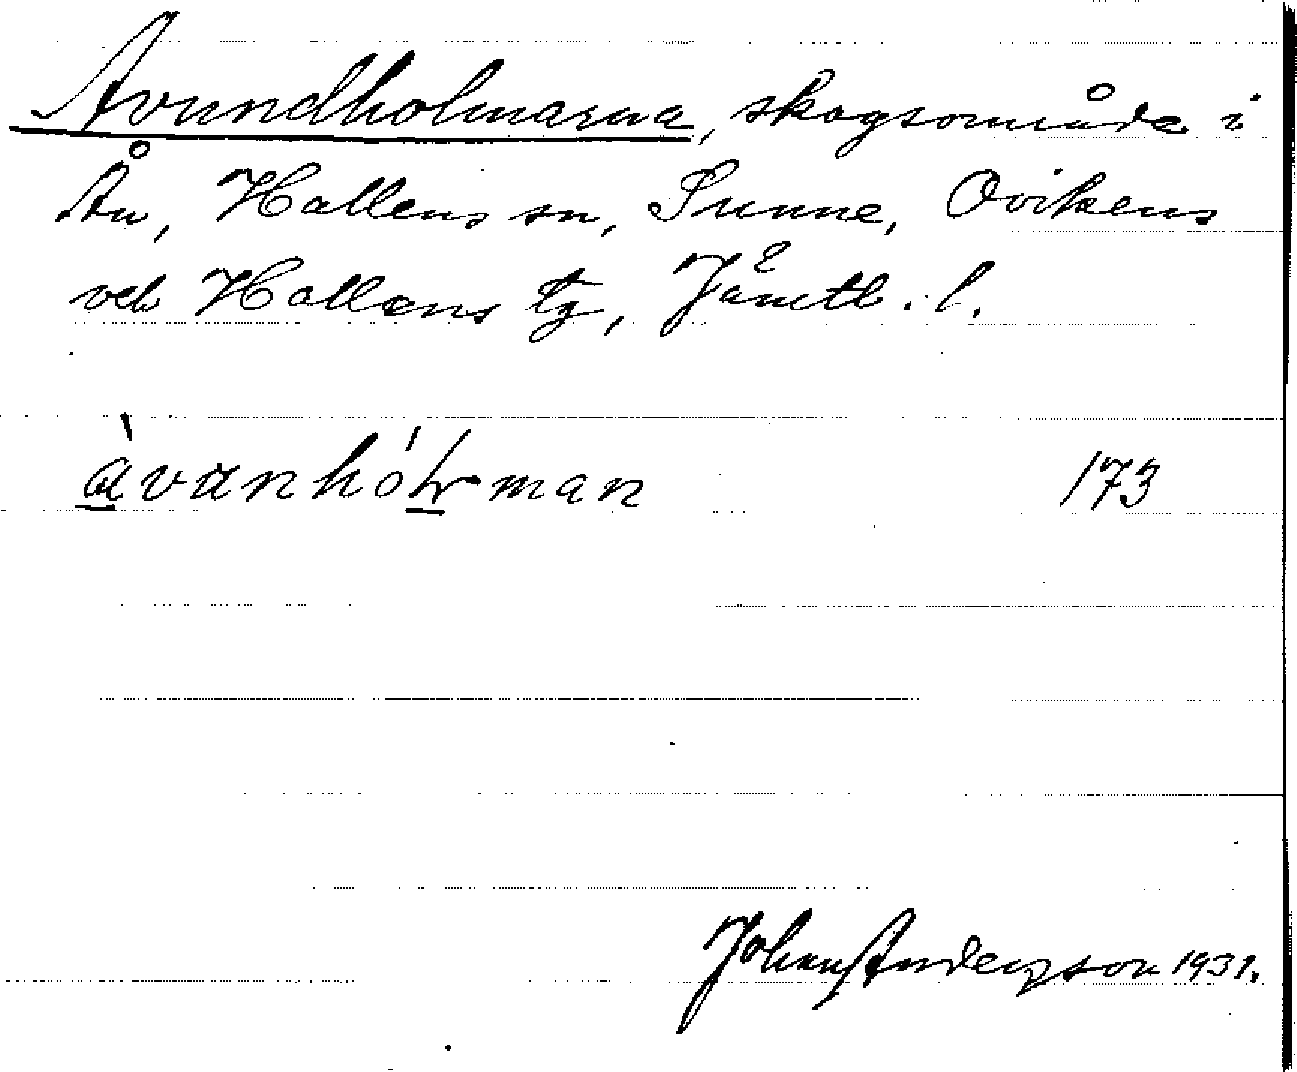 Avundholmarna, skogsområde i
Ån, Hallens sn, Sunne, Ovikens
och Hallens tg, Jämtl. l.
àvanhólrman 173
Johan Anderzson 1931.